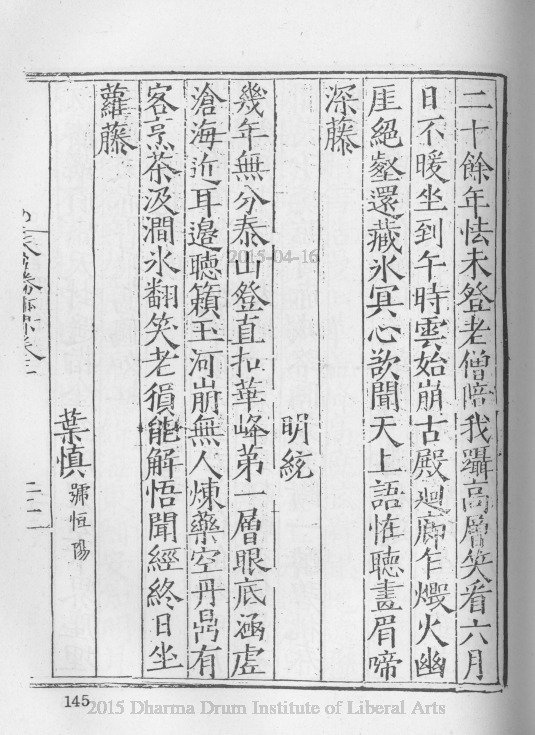 二十餘年怯未登老僧陪我躡高層笑看六月
日不暖坐到午時雲始崩古殿廻廊乍煨火幽
厓絕壑還藏氷冥心欲聞天上語惟聽畫眉啼
深藤
明綂
幾年無分泰山登直扣華峰第一層眼底涵虛
滄海近耳邉聴籟玉河崩無人煉藥空丹鼎有
客烹茶汲澗氷翻笑老猿能解悟聞經終日坐
蘿藤
葉慎 號恒陽
二十二
145
2015-04-16
2015 Dharma Drum Institute of Liberal Arts